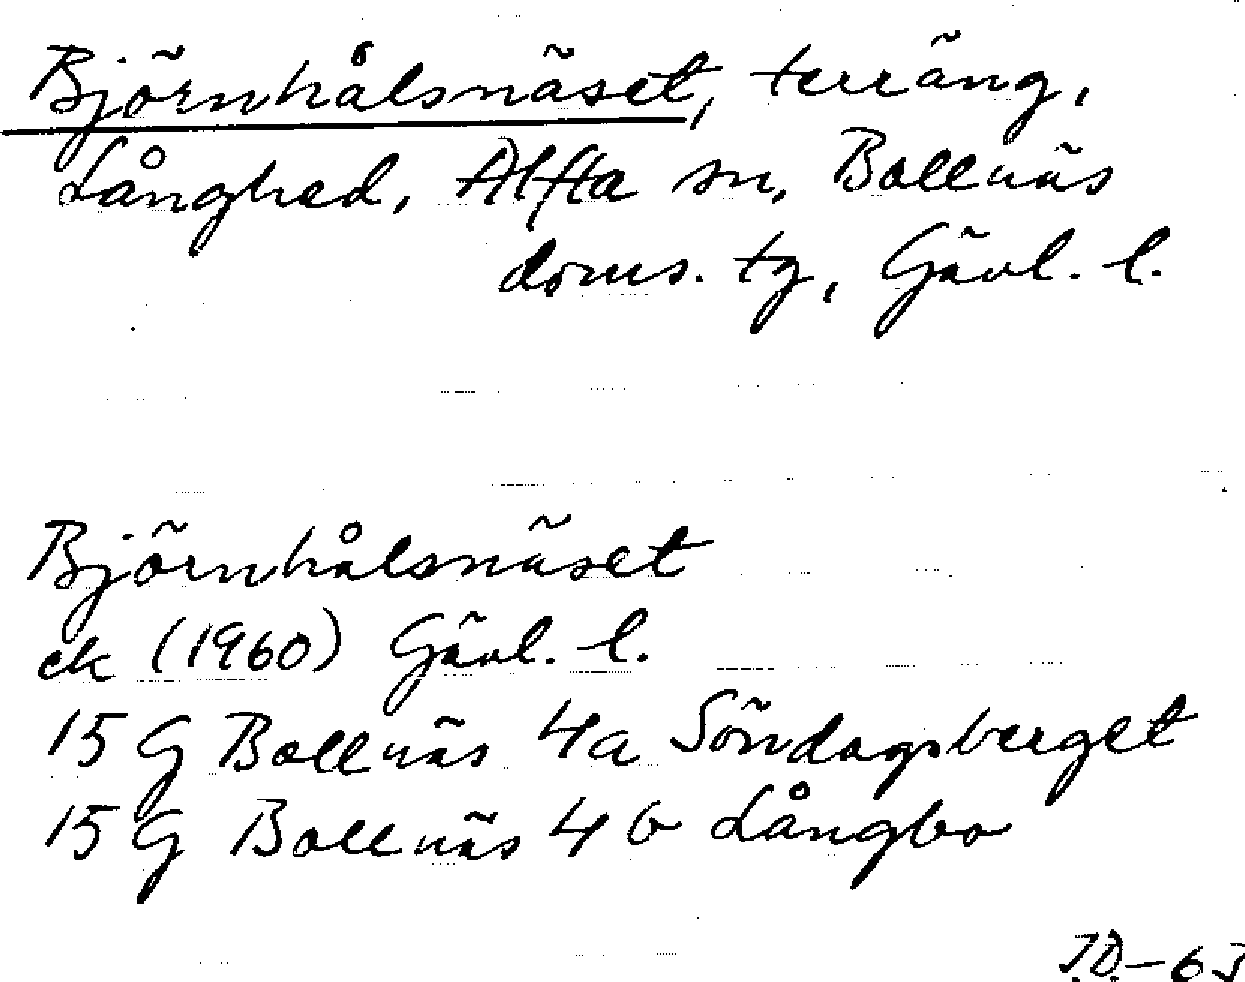 Björnhålsnäset, terräng,
Långhed, Alfta sn, Bollnäs
doms. tg, Gävl. l.
Björnhålsnäset
ek (1960) Gävl. l.
15 G Bollnäs 4a Söndagsberget
15 G Bollnäs 4 b Långbo
J.D.-63